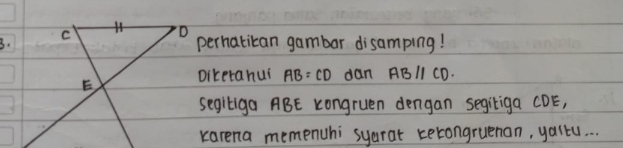 3.
C D
E
perhatikan gambar disamping!
Diketahui AB = CD dan AB // CD.
Segitiga ABE kongruen dengan segitiga CDE,
karena memenuhi syarat kekongruenan, yaitu...